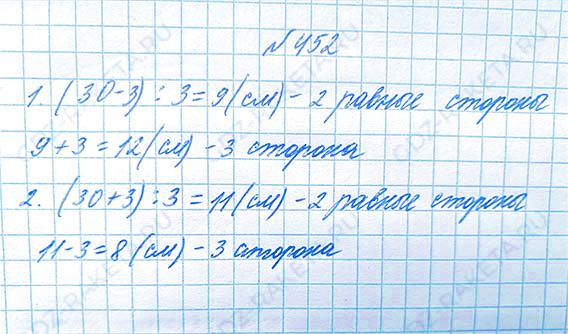 №452
1. (30-3) : 3 = 9 (см) - 2 равные стороны
9 + 3 = 12 (см) - 3 сторона
2. (30+3) : 3 = 11 (см) - 2 равные стороны
11 - 3 = 8 (см) - 3 сторона
GDZ-RAKETA.RU